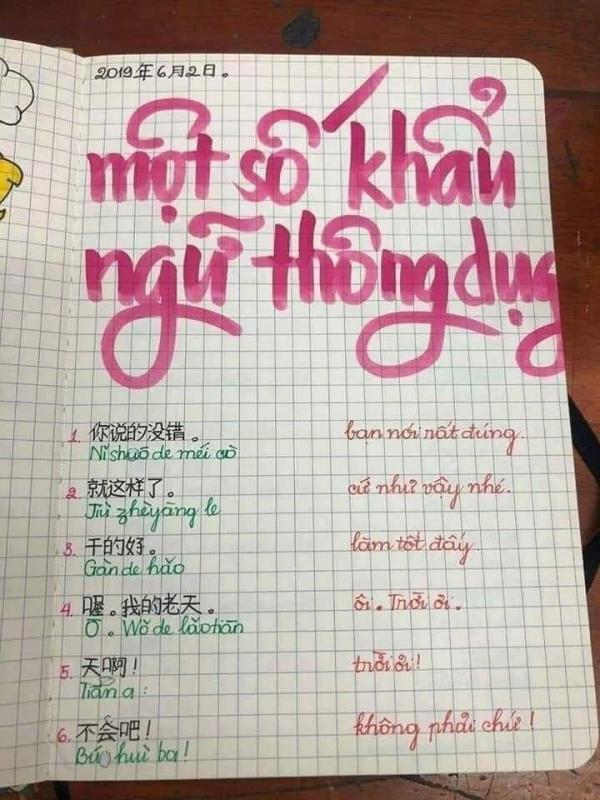 2019年6月2日。
một số khẩu
ngữ thông dụng
1. 你说的没错。 bạn nói rất đúng.
Nǐ shuō de méi cuò
2. 就这样了。 cứ như vậy nhé.
Jiù zhèyàng le
3. 干的好。 làm tốt đấy.
Gàn de hǎo
4. 喔。我的老天。 ôi. Trời ơi.
Ō. Wǒ de lǎotiān
5. 天啊！ trời ơi!
Tiān a:
6. 不会吧！ không phải chứ!
Bú huì ba!